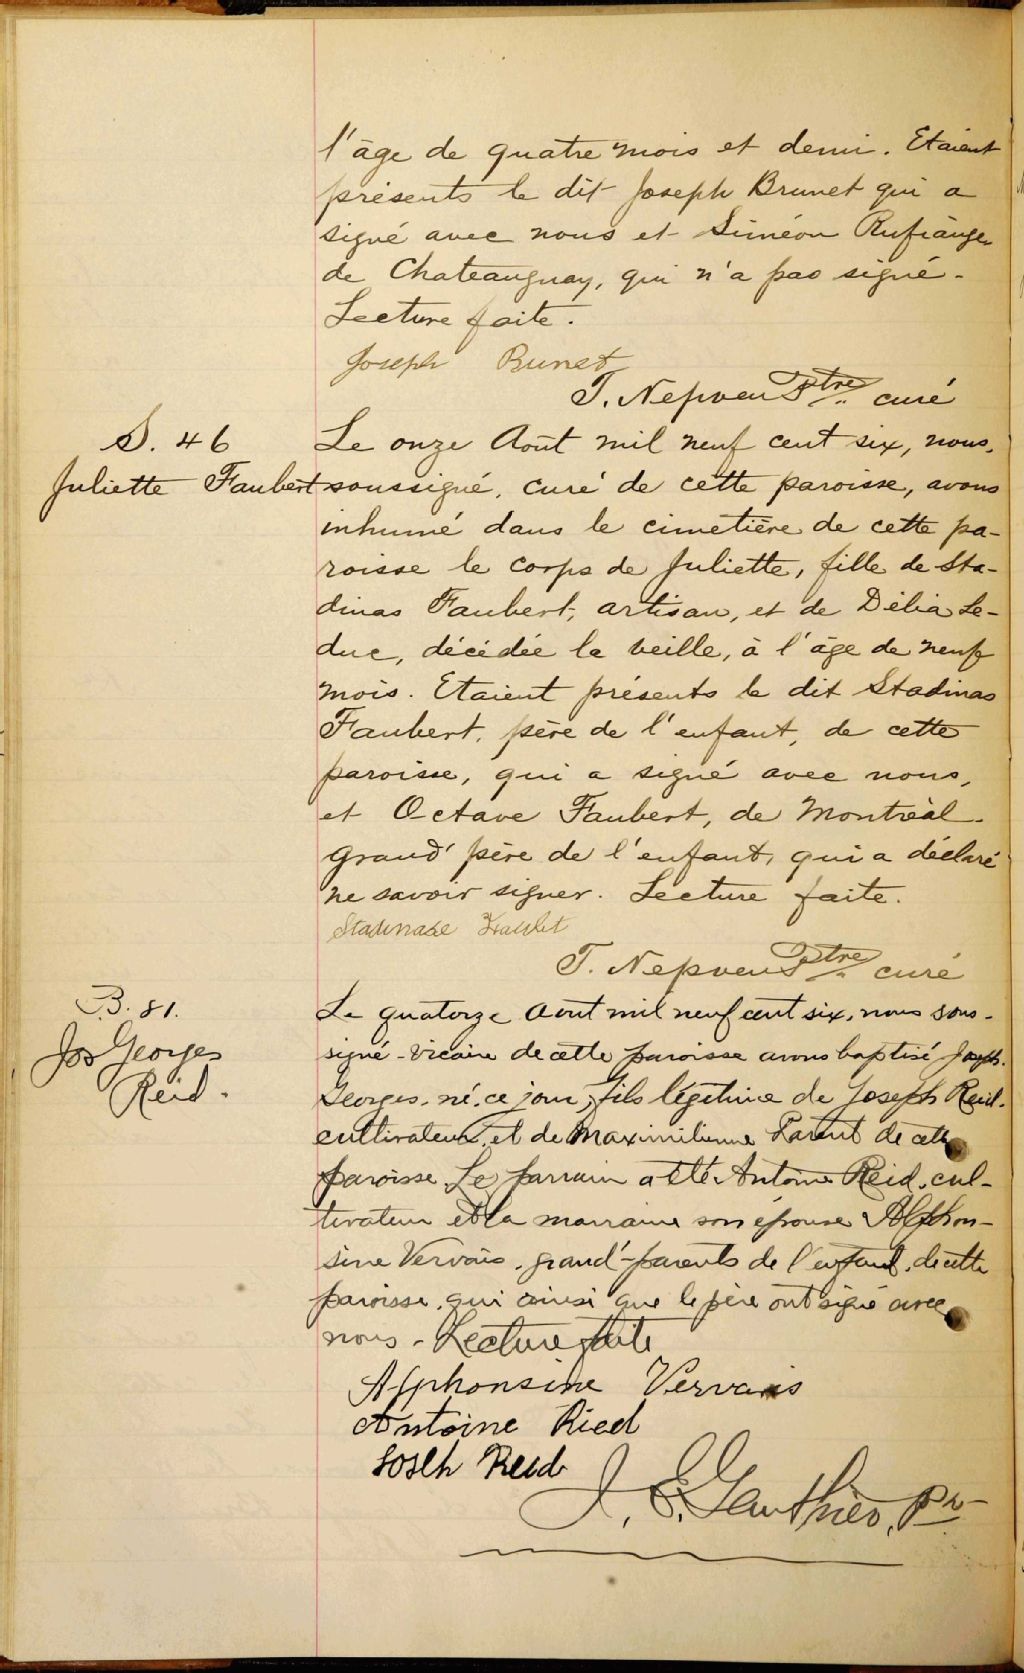 l'âge de quatre mois et demi. Etaient
présents le dit Joseph Brunet qui a
signé avec nous et Siméon Rufiange
de Chateauguay, qui n'a pas signé.
Lecture faite.
Joseph Brunet
T. Nepveu Ptre curé
S. 46
Juliette Faubert
Le onze Août mil neuf cent six, nous,
soussigné, curé de cette paroisse, avons
inhumé dans le cimetière de cette pa-
roisse le corps de Juliette, fille de Sta-
dinas Faubert, artisan, et de Délia Le-
duc, décédée la veille, à l'âge de neuf
mois. Etaient présents le dit Stadinas
Faubert, père de l'enfant, de cette
paroisse, qui a signé avec nous,
et Octave Faubert, de Montréal.
grand' père de l'enfant, qui a déclaré
ne savoir signer. Lecture faite.
T. Nepveu Ptre curé
B. 81.
Jos Georges
Reid.
Le quatorze Aout mil neuf cent six, nous sous-
signé - Vicaire de cette paroisse avons baptisé Joseph.
Georges, né, ce jour, fils légitime de Joseph Reid.
cultivateur, et de Maximilienne Parent de cette
paroisse. Le parrain a été Antoine Reid, cul-
tivateur et la marraine son épouse Alphon-
sine Vervais, grand'-parents de l'enfant, de cette
paroisse, qui ainsi que le père ont signé avec
nous - Lecture faite
Alphonsine Vervais
Antoine Ried
Joseh Reid
J. E. Gauthier, Pr